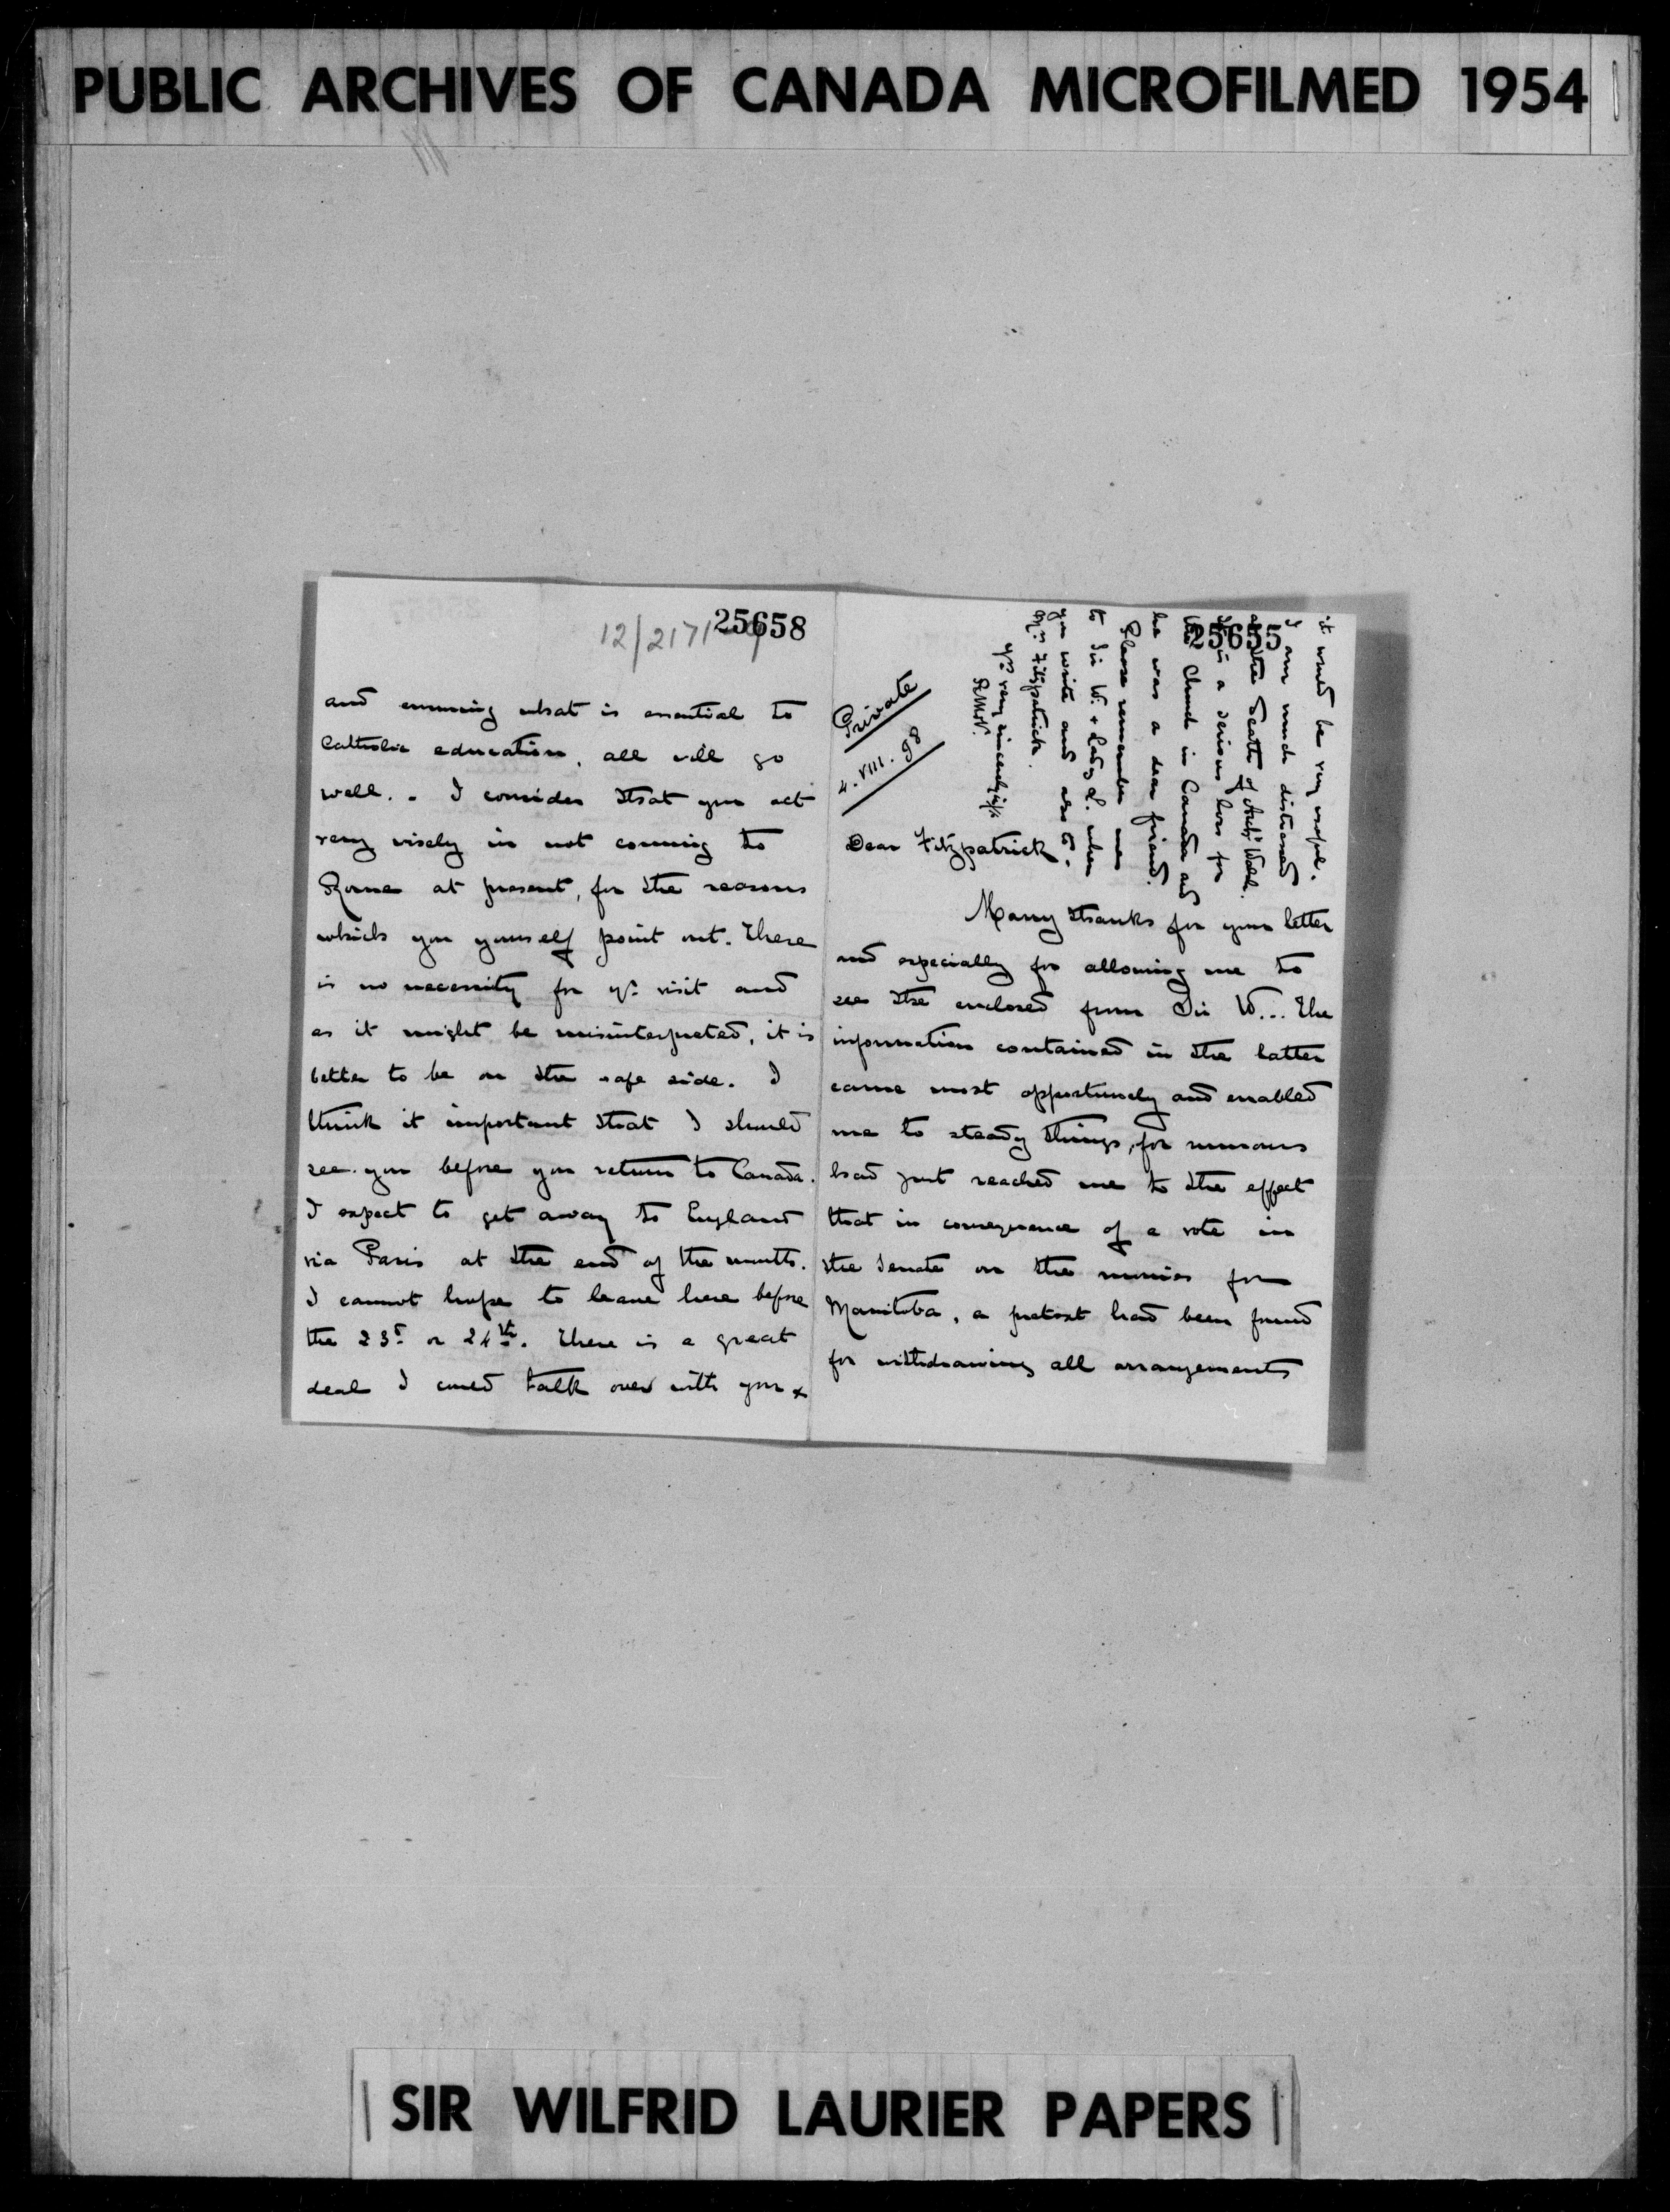 PUBLIC ARCHIVES OF CANADA MICROFILMED 1954
25658
12/2171
and ensuring what is essential to
Catholic education, all will go
well. - I consider that you act
very wisely in not coming to
Rome at present, for the reasons
which you yourself point out. There
is no necessity for yr. visit and
as it might be misinterpreted, it is
better to be on the safe side. I
think it important that I should
see you before you return to Canada.
I expect to get away to England
via Paris at the end of the month.
I cannot hope to leave here before
the 23r or 24th. There is a great
deal I could talk over with you x
25655
Private
4. VIII. 98
Dear Fitzpatrick
Many thanks for your letter
and especially for allowing me to
see the enclosed from Sir W... The
information contained in the latter
came most opportunely and enabled
me to steady things, for rumours
had just reached me to the effect
that in consequence of a vote in
the Senate on the monies for
Manitoba, a pretext had been found
for withdrawing all arrangements
it would be very useful.
I am much distressed
at the death of Archp Walsh.
It is a serious loss for
the Church in Canada and
he was a dear friend.
Please remember me
to Sir W. + Lady L. when
you write and also to
Mrs Fitzpatrick.
Yrs very sincerely in
SIR WILFRID LAURIER PAPERS